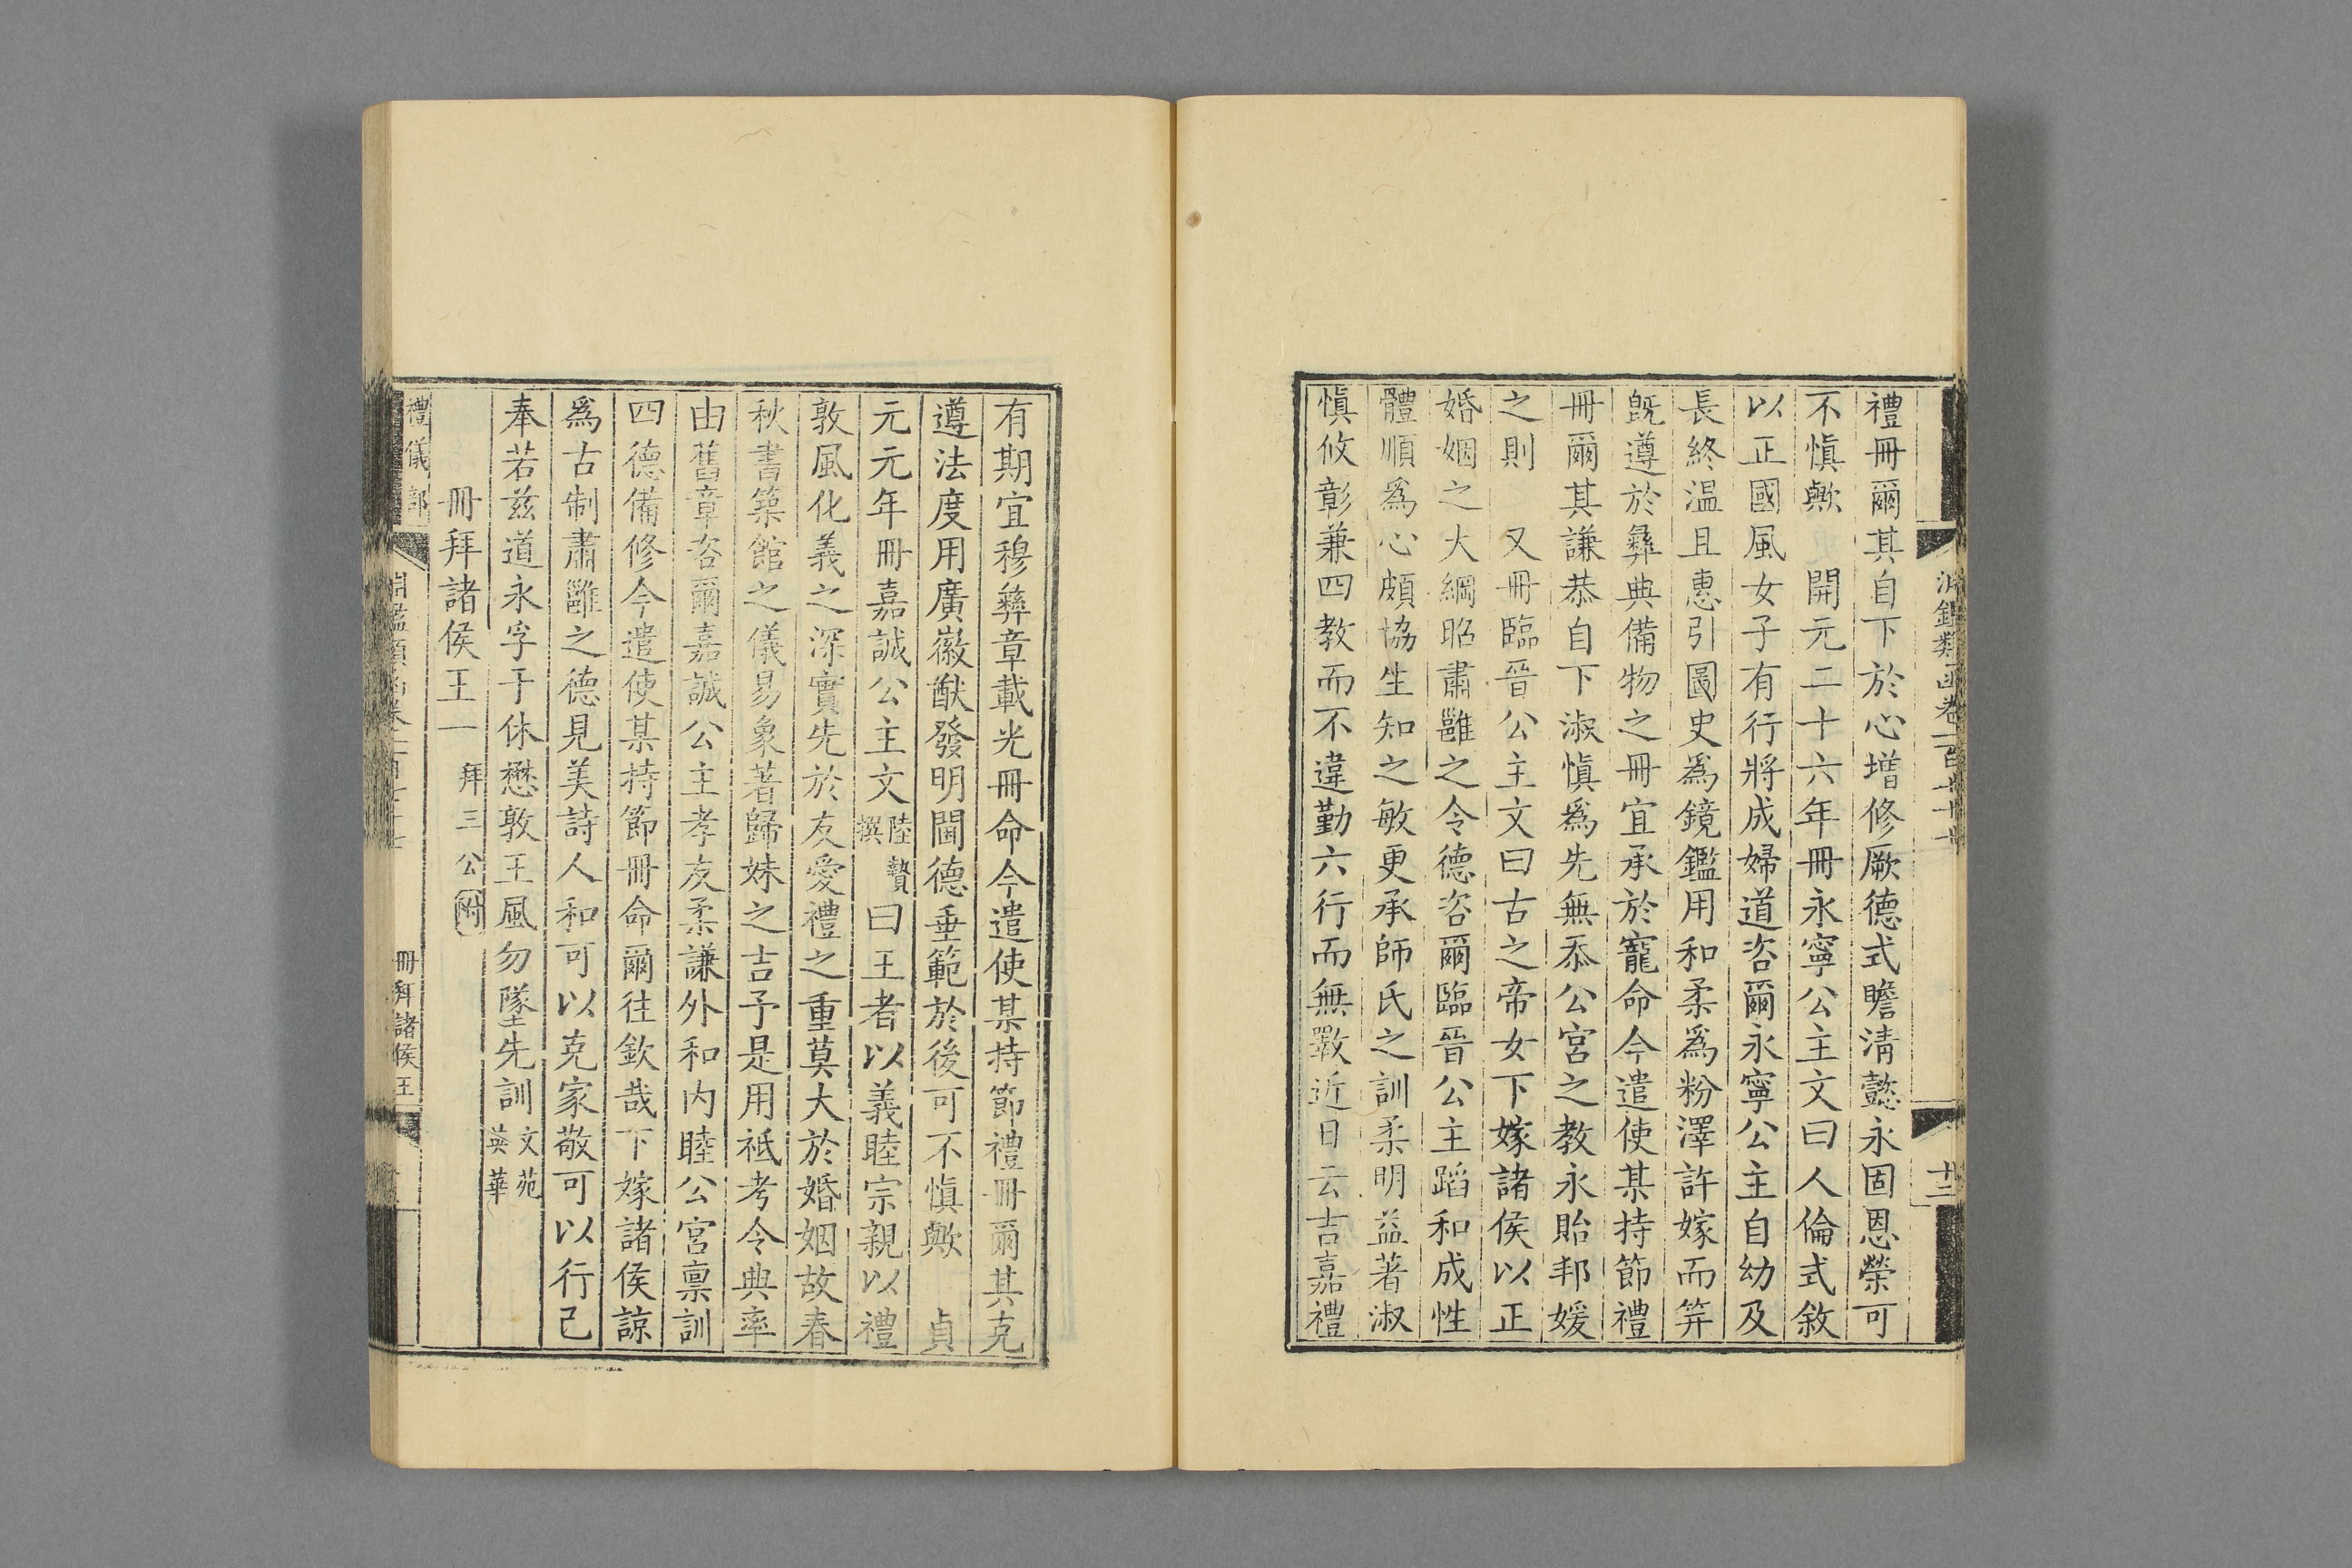 禮冊爾其自下於心增修厥德式瞻淸懿永固恩榮可
不愼歟　開元二十六年冊永寧公主文曰人倫式敘
以正國風女子有行將成婦道咨爾永寧公主自幼及
長終温且惠引圖史爲鏡鑑用和柔爲粉澤許嫁而笄
旣遵於彝典備物之冊宜承於寵命今遣使某持節禮
冊爾其謙恭自下淑愼爲先無忝公宮之教永貽邦媛
之則　又冊臨晉公主文曰古之帝女下嫁諸侯以正
婚姻之大綱昭肅雝之令德咨爾臨晉公主蹈和成性
體順爲心頗協生知之敏更承師氏之訓柔明益著淑
愼攸彰兼四教而不違勤六行而無斁近日云吉嘉禮
有期宜穆彝章載光冊命今遣使某持節禮冊爾其克
遵法度用廣徽猷發明閫德垂範於後可不愼歟　貞
元元年冊嘉誠公主文陸贄撰曰王者以義睦宗親以禮
敦風化義之深實先於友愛禮之重莫大於婚姻故春
秋書築館之儀易象著歸妹之吉予是用祗考令典率
由舊章咨爾嘉誠公主孝友柔謙外和內睦公宮禀訓
四德備修今遣使某持節冊命爾往欽哉下嫁諸侯諒
爲古制肅雝之德見美詩人和可以克家敬可以行己
奉若兹道永孚于休懋敦王風勿墜先訓文苑英華
冊拜諸侯王一　拜三公附
禮儀部
冊拜諸侯王